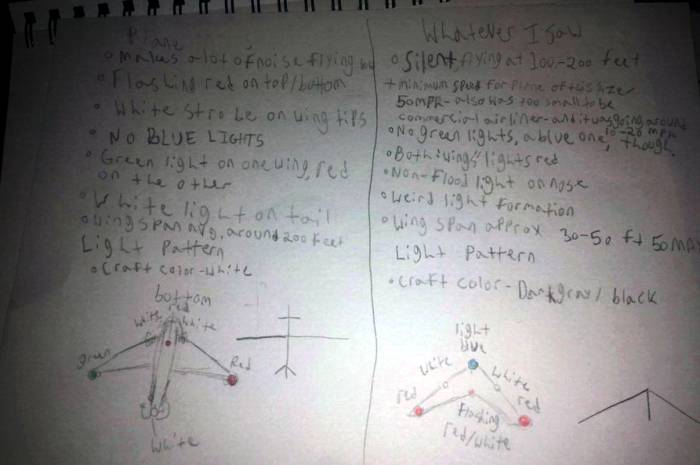 Plane
• Makes a lot of noise flying by
• Flashing red on top/bottom
• White strobe on wing tips
• NO BLUE LIGHTS
• Green light on one wing, red
on the other
• White light on tail
• Wing span avg. around 200 feet
Light Pattern
• Craft color-White
bottom
red
white
white
green
Red
White
Whatever I Saw
• Silent, flying at 100-200 feet
+ minimum speed for plane of this size
50MPH-also was too small to be
commercial airliner-and it was going around
10-20 mph
• No green lights, a blue one, though.
• Both "wings" lights red
• Non-Flood light on nose
• Weird light formation
• Wing span approx 30-50 ft
Light Pattern
• Craft color- Dark gray/black
light
blue
white
White
red
red
Flashing
red/white